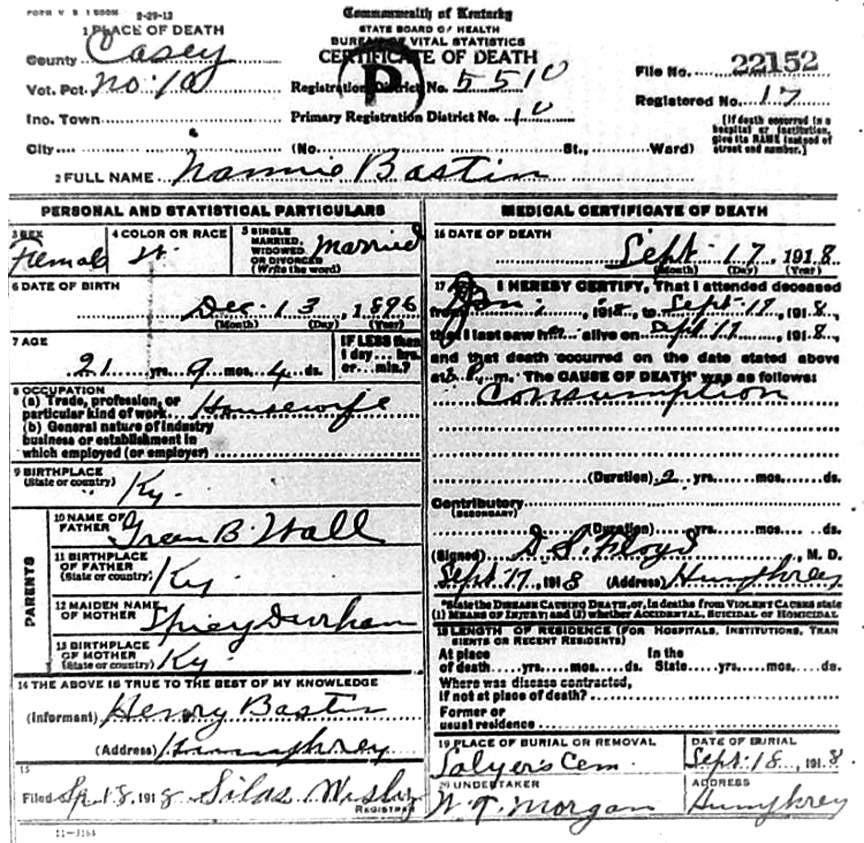 FORM V S 1 2-29-12
Commonwealth of Kentucky
STATE BOARD OF HEALTH
BUREAU OF VITAL STATISTICS
CERTIFICATE OF DEATH
1 PLACE OF DEATH
County Casey
Vot. Pct. No. 10
Registration District No. 5510
File No. 22152
Inc. Town
Primary Registration District No. 10
Registered No. 17
City (No. St., Ward)
[If death occurred in a hospital or institution, give its NAME instead of street and number.]
2 FULL NAME Nannie Bastin
P
PERSONAL AND STATISTICAL PARTICULARS
3 SEX Female
4 COLOR OR RACE W.
5 SINGLE MARRIED, WIDOWED OR DIVORCED (Write the word) Married
6 DATE OF BIRTH
Dec. 13, 1896
(Month) (Day) (Year)
7 AGE
21 yrs. 9 mos. 4 ds.
IF LESS than 1 day... hrs. or... min.?
8 OCCUPATION
(a) Trade, profession, or
particular kind of work Housewife
(b) General nature of industry
business or establishment in
which employed (or employer)
9 BIRTHPLACE
(State or country) Ky.
PARENTS
10 NAME OF FATHER B. Wall
11 BIRTHPLACE OF FATHER
(State or country) Ky.
12 MAIDEN NAME OF MOTHER Durham
13 BIRTHPLACE OF MOTHER
(State or country) Ky.
14 THE ABOVE IS TRUE TO THE BEST OF MY KNOWLEDGE
(Informant) Henry Bastin
(Address) Humphrey
15
Filed 18, 1918 Silas Wesley
REGISTRAR
11-3164
MEDICAL CERTIFICATE OF DEATH
16 DATE OF DEATH
Sept 17, 1918
(Month) (Day) (Year)
17 I HEREBY CERTIFY, That I attended deceased
from 1, 1918, to Sept 17, 1918,
that I last saw her alive on Sept 17, 1918,
and that death occurred on the date stated above
at P. m. The CAUSE OF DEATH* was as follows:
Consumption
(Duration) 2 yrs. mos. ds.
Contributory
(SECONDARY)
(Duration) yrs. mos. ds.
(Signed) D. S. Floyd M. D.
Sept 17, 1918 (Address) Humphrey
*State the DISEASE CAUSING DEATH, or, in deaths from VIOLENT CAUSES state
(1) MEANS OF INJURY; and (2) whether ACCIDENTAL, SUICIDAL or HOMICIDAL
18 LENGTH OF RESIDENCE (FOR HOSPITALS, INSTITUTIONS, TRAN
SIENTS OR RECENT RESIDENTS)
At place of death yrs. mos. ds. In the State yrs. mos. ds.
Where was disease contracted,
if not at place of death?
Former or
usual residence
19 PLACE OF BURIAL OR REMOVAL
Salyer's Cem.
DATE OF BURIAL
Sept. 18, 1918
20 UNDERTAKER
W. T. Morgan
ADDRESS
Humphrey